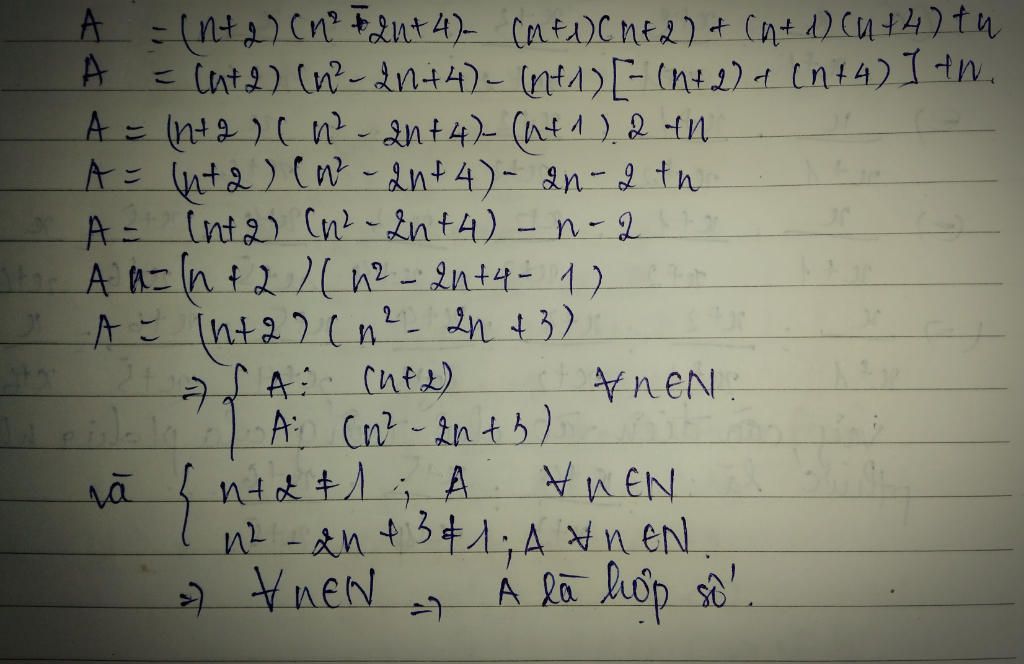 A = (n+2)(n² - 2n+4) - (n+1)(n+2) + (n+1)(n+4) +n
A = (n+2) (n² - 2n+4) - (n+1)[-(n+2) + (n+4)] +n.
A = (n+2)( n² - 2n+4) - (n+1).2 +n
A = (n+2)(n² - 2n+4) - 2n - 2 +n
A = (n+2) (n² - 2n+4) - n - 2
A n = (n+2)( n² - 2n+4 - 1)
A = (n+2)(n² - 2n+3)
=> { A ⋮ (n+2) ∀n∈N.
A ⋮ (n² - 2n+3)
và { n+2 ≠ 1 ; A ∀n∈N
n² - 2n + 3 ≠ 1 ; A ∀n∈N.
=> ∀n∈N => A là hợp số.